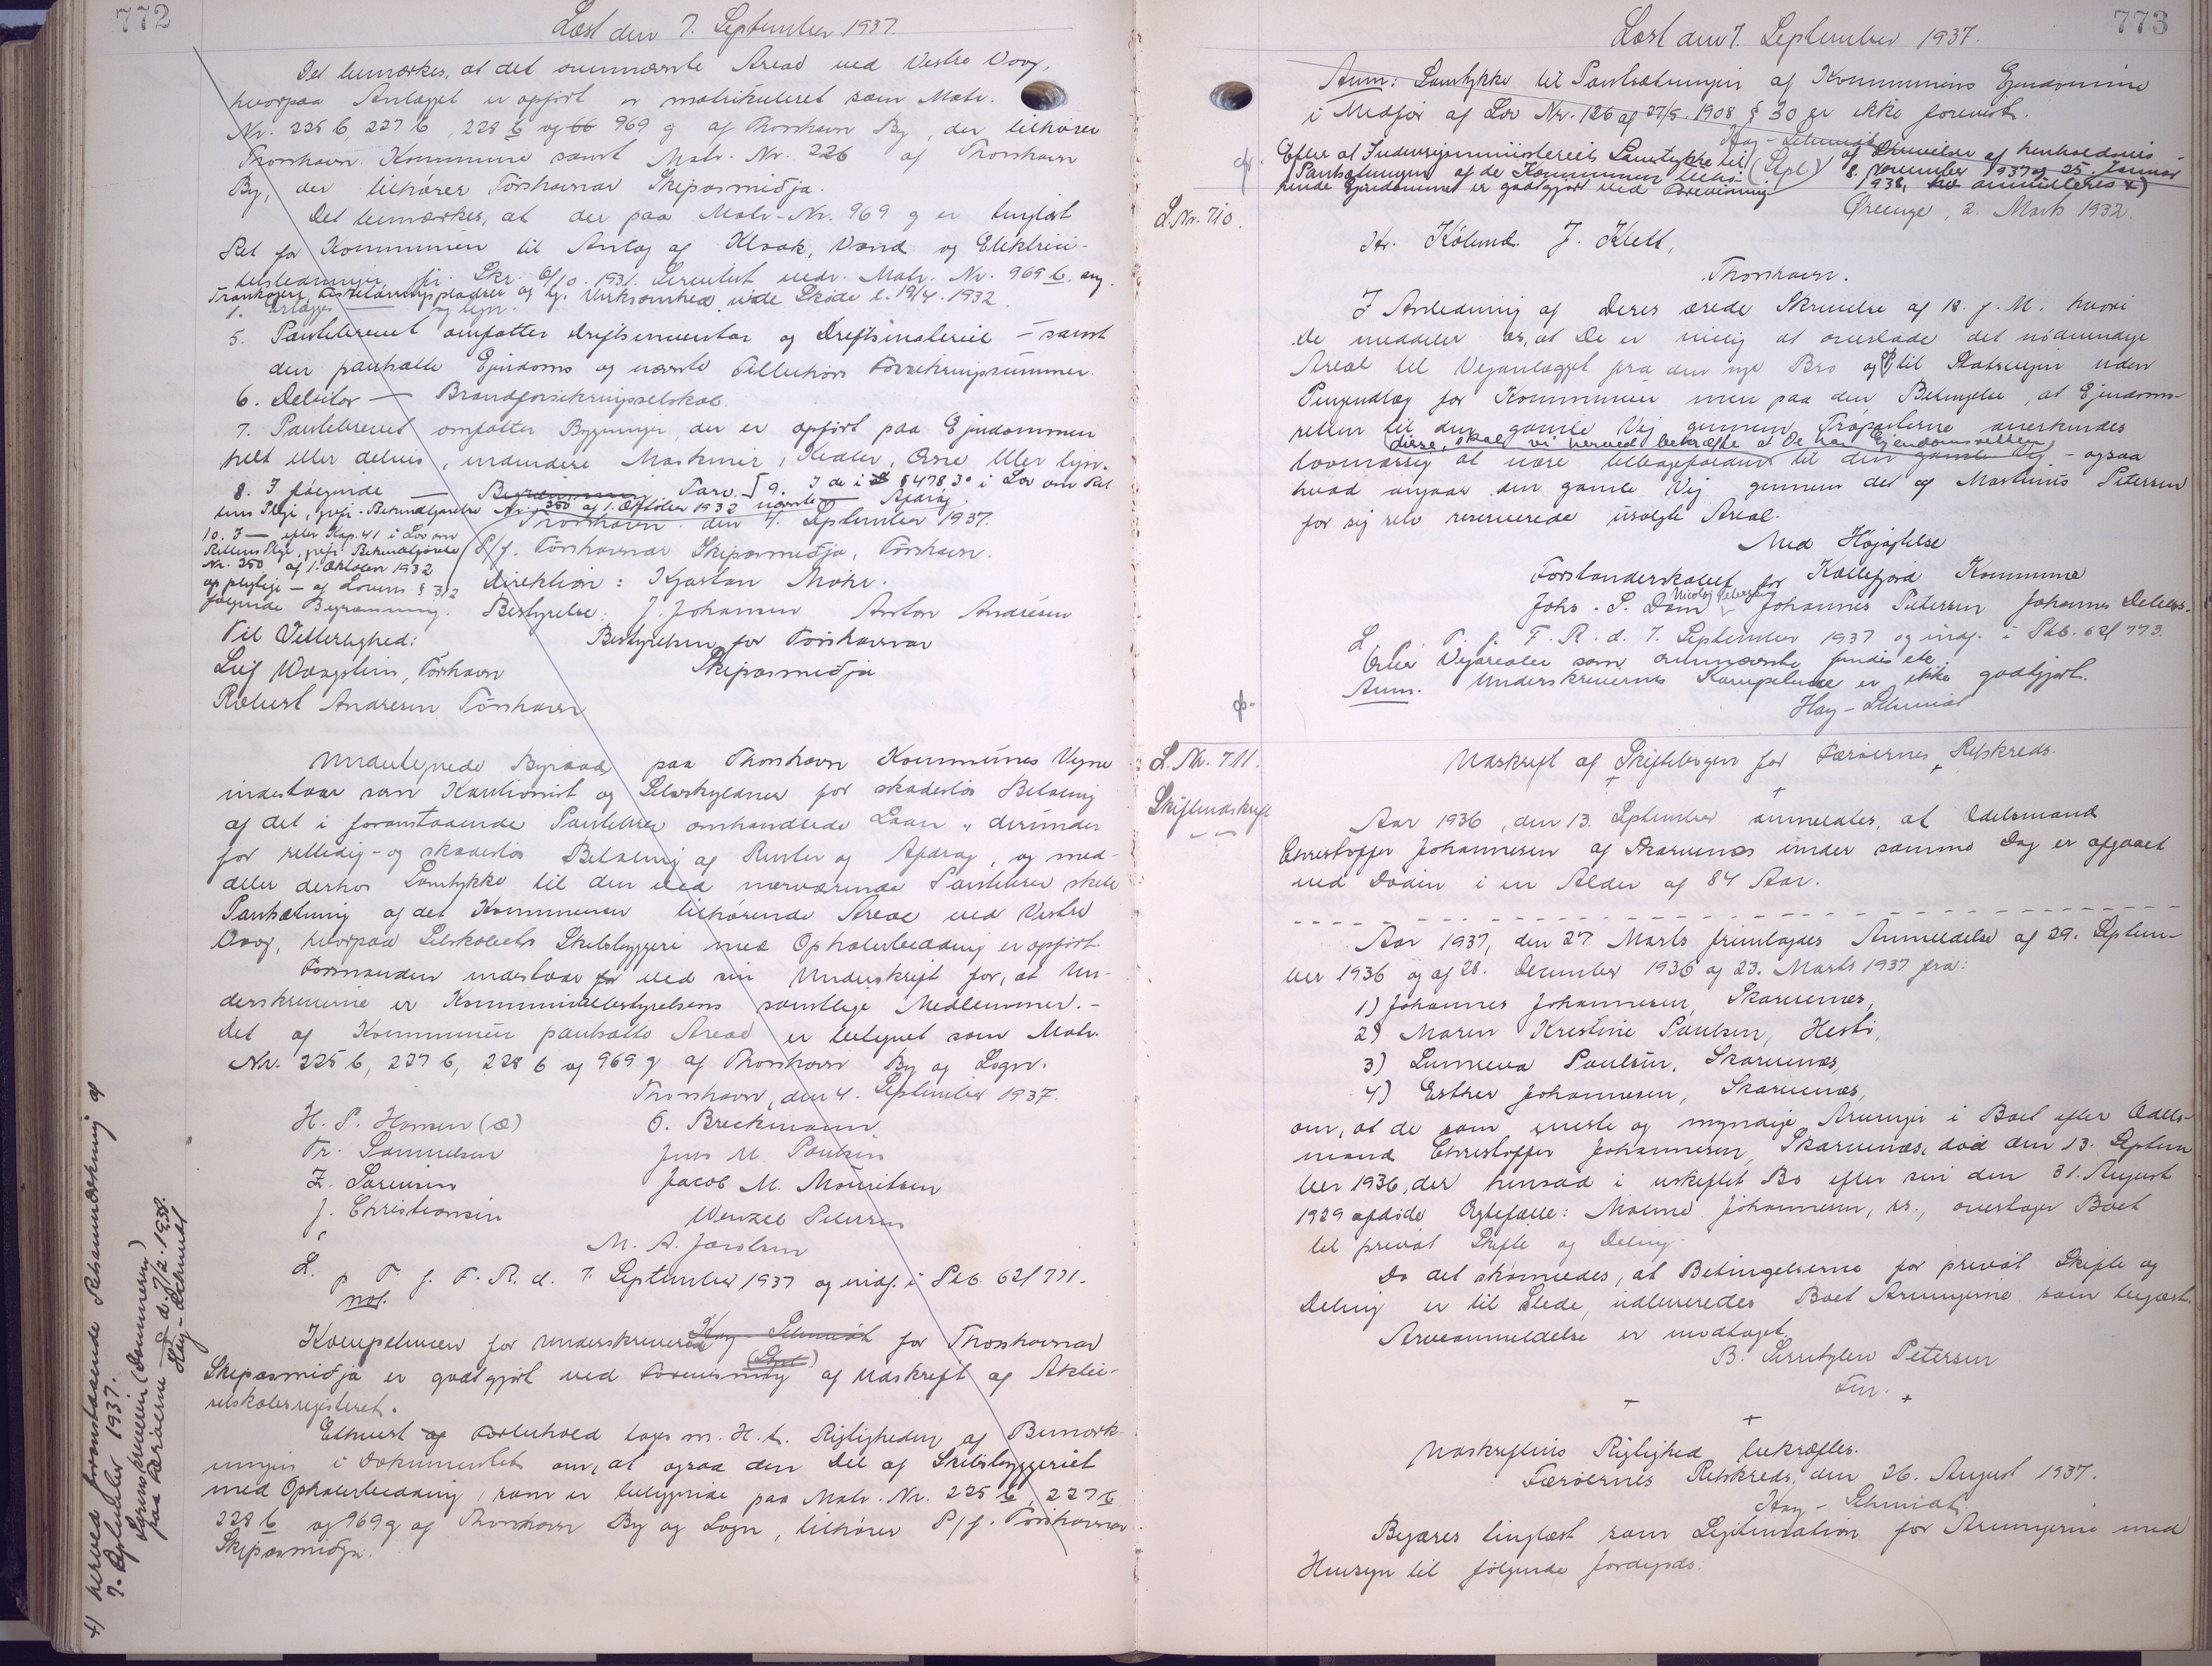 772
Læst den 7. September 1937.
Det bemærkes, at det ovennævnte Areal ved Vestre Vaag,
hvorpaa Anlæget er opført er matrikuleret som Matr.
Nr. 225 b, 227 b, 228 b og 969 g af Thorshavn By, der tilhører
Thorshavn Kommune samt Matr. Nr. 226 af Thorshavn
By, der tilhører Tórshavnar Skipasmiðja.
Det bemærkes, at der paa Matr.-Nr. 969 g er tinglæst
Ret for Kommunen til Anlæg af Kloak, Vand og Elektrici-
tetsledninger jfr. Skr. 6/10. 1931. Servitut vedr. Matr. Nr. 969 b. ang.
Trankogeri, og lg. Virksomhed vide Skøde l. 19/4. 1932.
5. Pantebrevet omfatter Driftsinventar og Driftsmateriel - samt
den pantsatte Ejendoms og nævnte Tilbehørs Forsikringssummer.
6. Debitor — Brandforsikringsselskab.
7. Pantebrevet omfatter Bygninger, der er opført paa Ejendommen
helt eller delvis, indendøre Maskiner, Kedler, Ovne eller lign.
8. I følgende — Tarv. 9. I de i § 478, 3º i Lov om Ret
tens Pleje, jvfr. Bekendtgørelse Nr. 350 af 1. Oktober 1932 nævnte — Afdrag
Thorshavn den 4. September 1937.
10. I — efter Kap. 41 i Lov om
Rettens Pleje, jvfr. Bekendtgørelse
Nr. 350 af 1. Oktober 1932
P/f. Tórshavnar Skipasmiðja, Tórshavn.
Direktion: Kjartan Mohr.
følgende Bestyrelse: J. Johansen Anton Andresen
Til Vitterlighed: Bestyrelsen for Tórshavnar
Leif Waagstein, Tórshavn Skipasmiðja
Robert Andresen Tórshavn
Undertegnede Byraad paa Thorshavn Kommunes Vegne
indestaar som Kautionist og Selvskyldner for skadesløs Betaling
af det i foranstaaende Pantebrev omhandlede Laan, derunder
for rettidig- og skadesløs Betaling af Renter og Afdrag, og med-
deler derhos Samtykke til den ved nærværende Pantebrev skete
Pantsætning af det Kommunen tilhørende Areal ved Vestre
Vaag, hvorpaa Selskabets Skibsbyggeri med Ophalerbedding er opført.
Formanden indestaar for ved sin Underskrift for, at Un-
derskriverne er Kommunalbestyrelsens samtlige Medlemmer. -
Det af Kommunen pantsatte Areal er betegnet som Matr.
Nr. 225 b, 227 b, 228 b og 969 g af Thorshavn By og Sogn.
Thorshavn, den 4. September 1937.
H. P. Hansen (æ) O. Breckmann
Fr. Samuelsen Jens M. Poulsen
Z. Sørensen Jacob M. Mouritsen
J. Christiansen Wenzel Petersen
M. A. Jacobsen
L. T. f. F. R. d. 7. September 1937 og indf. i Pkb. 62/771.
Hay-Schmidt
Kompetencen for Underskriverne for Thorshavnar
(Stpl)
Skipasmiðja er godtgjort ved Forevisning af Udskrift af Aktie-
selskabsregisteret.
Ethvert Forbehold tages m. H. t. Rigtigheden af Bemærk-
ningen i Dokumentet om, at ogsaa den Del af Skibsbyggeriet
med Ophalerbedding, som er beliggende paa Matr. Nr. 225 b, 227 b
228 b og 969 g af Thorshavn By og Sogn, tilhører P/f. Tórshavnar
Skipasmiðja.
+) herved foranstaaende Retsanmærkning af
7. September 1937.
Sorenskriveren (Dommeren)
paa Færøerne d. 7/2. 1938.
Hay-Schmidt
773
Læst den 7. September 1937.
Anm: Samtykke til Pantsætningen af Kommunens Ejendomme
i Medfør af Lov Nr. 126 af 27/5. 1908 § 30 er ikke forevist.
Hay-Schmidt
Efter at Indenrigsministeriets Samtykke til (Stpl)
Pantsætningen af de Kommunen tilhø-
rende Ejendomme er godtgjort ved Forevisning
af Skrivelse af henholdsvis
8. November 1937 og 25. Januar
1938, annulleres +)
L. Nr. 710.
Ørenge, 2. Marts 1932.
Hr. Købmd. J. Klett,
Thorshavn.
I Anledning af Deres ærede Skrivelse af 18. f. M. hvori
De meddeler os, at De er villig at overlade det nødvendige
Areal til Vejanlægget fra den nye Bro og til Statsvejen uden
Pengeudlæg for Kommunen men paa den Betingelse, at Ejendoms-
retten til den gamle Vej gennem anerkendes
disse, skal vi herved bekræfte at De har Ejendomsretten
lovmæssig at være tilbagefalden til den gamle Vej - ogsaa
hvad angaar den gamle Vej gennem det af Martinus Petersen
for sig selv reserverede usolgte Areal.
Med Højagtelse
Forstanderskabet for Kollefjord Kommune
Nicolaj Petersen
Johs. S. Dam Johannes Petersen Johannes
L. T. f. F. R. d. 7. September 1937 og indf. i Pkb. 62/773.
Vejarealer som ovennævnte findes ikke.
Anm. Underskrivernes Kompetence er ikke godtgjort.
Hay-Schmidt
L. Nr. 711.
Skifteudskrift
Udskrift af Skiftebogen for Færøernes Retskreds.
Aar 1936, den 13. September anmeldtes, at Odelsmand
Christoffer Johannesen af Skarvenæs under samme Dag er afgaaet
ved Døden i en Alder af 84 Aar.
Aar 1937, den 27 Marts fremlagdes Anmeldelse af 29. Septem-
ber 1936 og af 28. December 1936 og 23. Marts 1937 fra:
1) Johannes Johannesen, Skarvenæs,
2) Maren Kristine Poulsen, Hestø,
3) Sunneva Poulsen, Skarvenæs,
4) Esther Johannesen, Skarvenæs,
om, at de som eneste og myndige Arvinger i Boet efter Odels-
mand Christoffer Johannesen, Skarvenæs, død den 13. Septem
ber 1936, der hensad i uskiftet Bo efter sin den 31. August
1929 afdøde Ægtefælle: Malene Johannesen, s., overtager Boet
til privat Skifte og Deling.
Da det skønnedes, at Betingelserne for privat Skifte og
Deling er til Stede, udleveredes Boet Arvingerne som begært.
Arveanmeldelse er modtaget.
B. Serritzlew Petersen
Fm.
Udskriftens Rigtighed bekræftes.
Færøernes Retskreds, den 26. August 1937.
Hay-Schmidt.
Begæres tinglæst som Legitimation for Arvingerne med
Hensyn til følgende Jordegods: